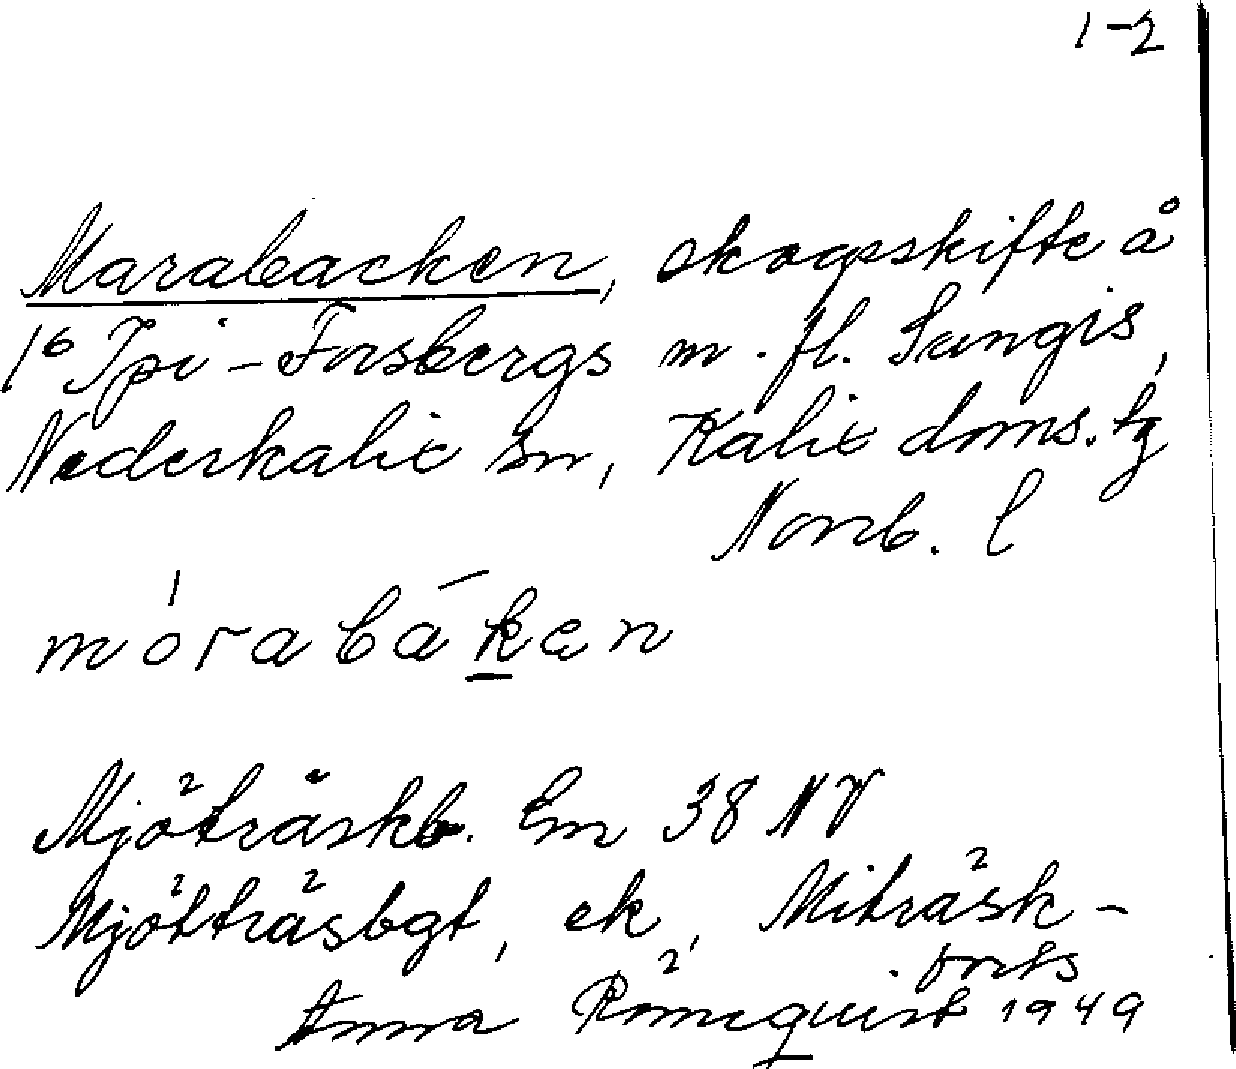 1-2
Marabacken, skogsskifte å
1⁶ Ipi-Forsbergs m. fl. Sangis,
Nederkalix sn, Kalix doms. tg
Norrb. l
mórabākæn
Mjöträskb. Em 38 NV
Mjötträsbgt, ek, Miträsk-
forts
Anna Rönnquist 1949